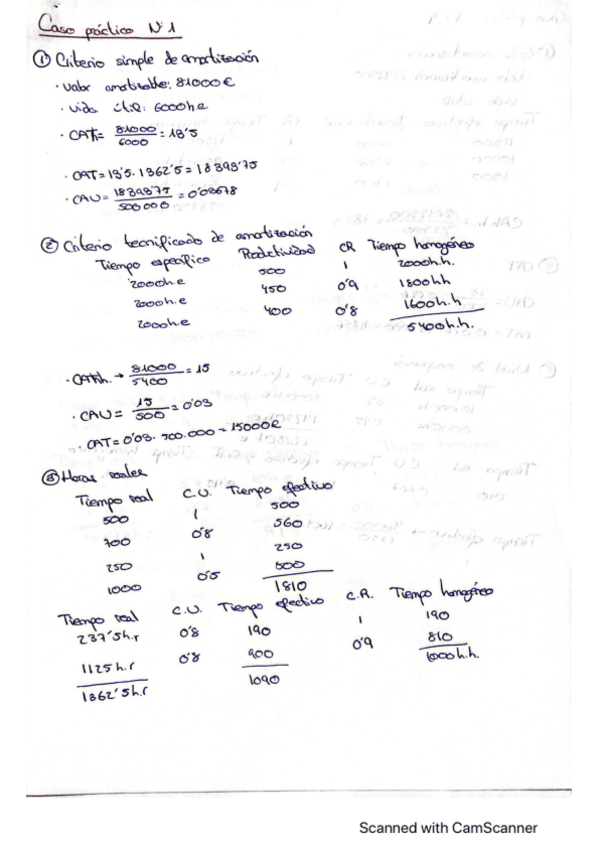 Caso práctico Nº1
① Criterio simple de amortización
· Valor amortizable: 81000€
· vida útil: 6000h.e
· CATh= 81000/6000 = 13'5
· CAT= 13'5 · 1362'5 = 18393'75
· CAU= 18393'75/500000 = 0'03678
② Criterio tecnificado de amortización
Tiempo específico Productividad CR Tiempo homogéneo
2000h.e 500 1 2000h.h.
2000h.e 450 0'9 1800hh
2000h.e 400 0'8 1600h.h
5400h.h.
· CATh.h. → 81000/5400 = 15
· CAU = 15/500 = 0'03
· CAT= 0'03 · 500.000 = 15000€
③ Horas reales
Tiempo real C.U. Tiempo efectivo
500 1 500
700 0'8 560
250 1 250
1000 0'5 500
1810
Tiempo real C.U. Tiempo efectivo C.R. Tiempo homogéneo
237'5h.r 0'8 190 1 190
1125h.r 0'8 900 0'9 810
1362'5h.r 1090 1000h.h.
Scanned with CamScanner